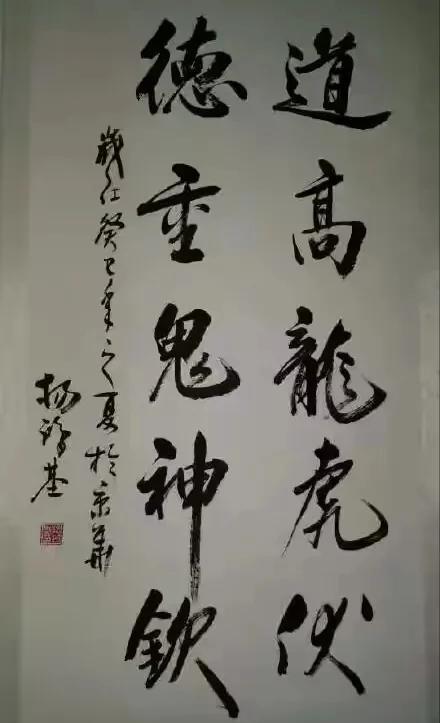 道高龍虎伏
德重鬼神欽
歲在癸巳年之夏於京華
楊靜基